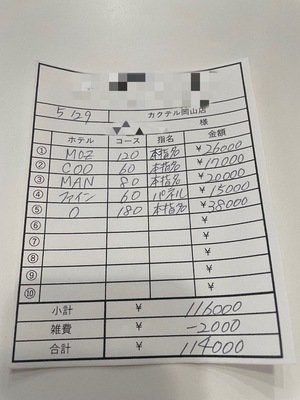 5/29 カクテル岡山店
ホテル コース 指名 金額
① MOZ 120 本指名 ¥26000
② COO 60 本指名 ¥17000
③ MAN 80 本指名 ¥20000
④ ファイン 60 パネル ¥15000
⑤ O 180 本指名 ¥38000
⑥ ¥
⑦ ¥
⑧ ¥
⑨ ¥
⑩ ¥
小計 ¥ 116000
雑費 ¥ -2000
合計 ¥ 114000